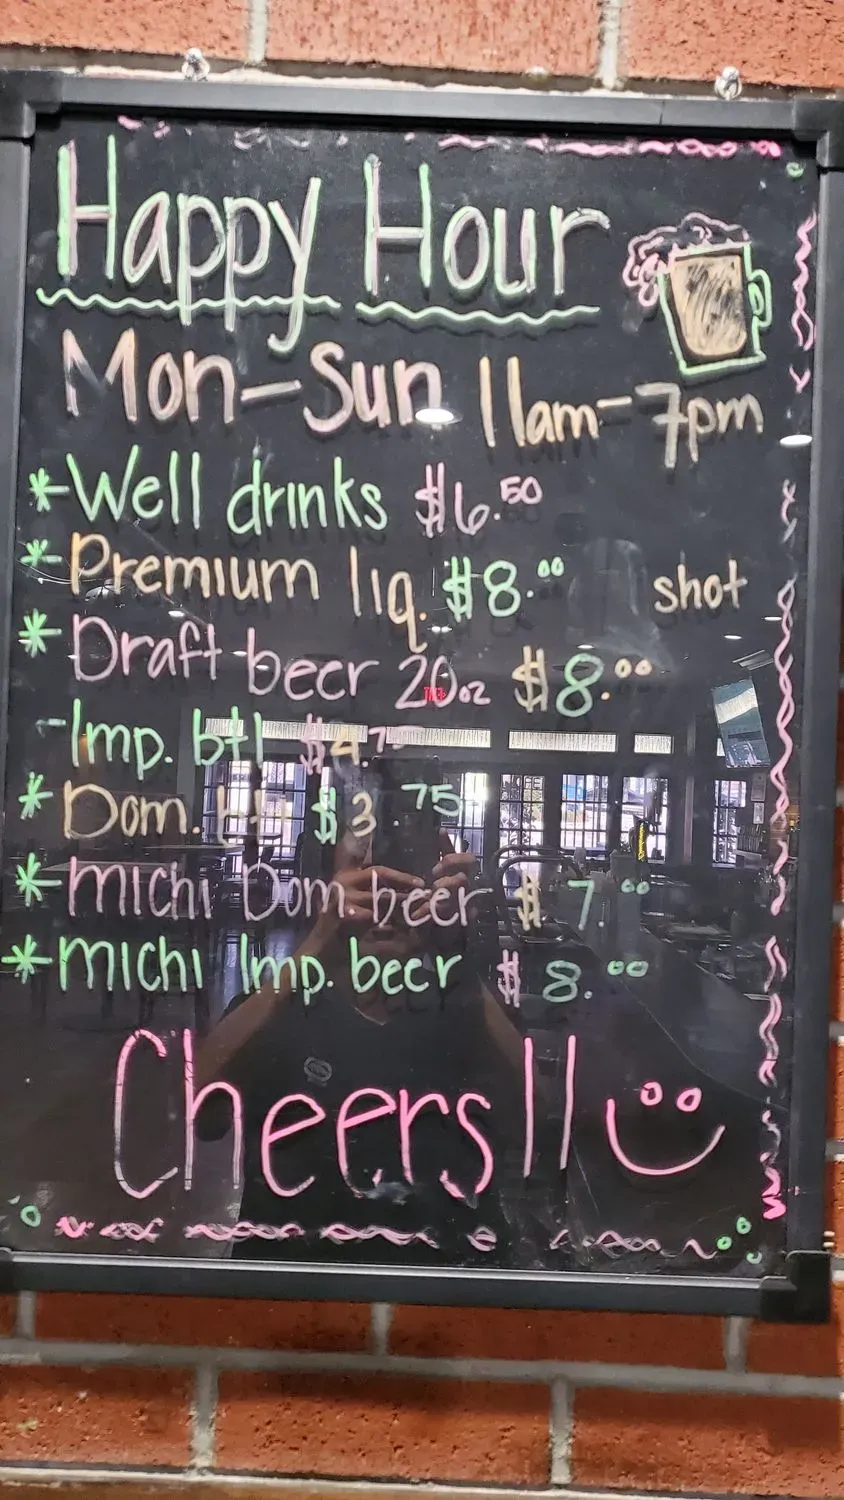 Happy Hour
Mon-Sun 11am-7pm
*Well drinks $6.50
*Premium liq. $8.00 shot
*Draft beer 20oz $8.00
-Imp. btl $4.75
*Dom. btl $3.75
*Michi Dom. beer $7.00
*Michi Imp. beer $8.00
Cheers!!